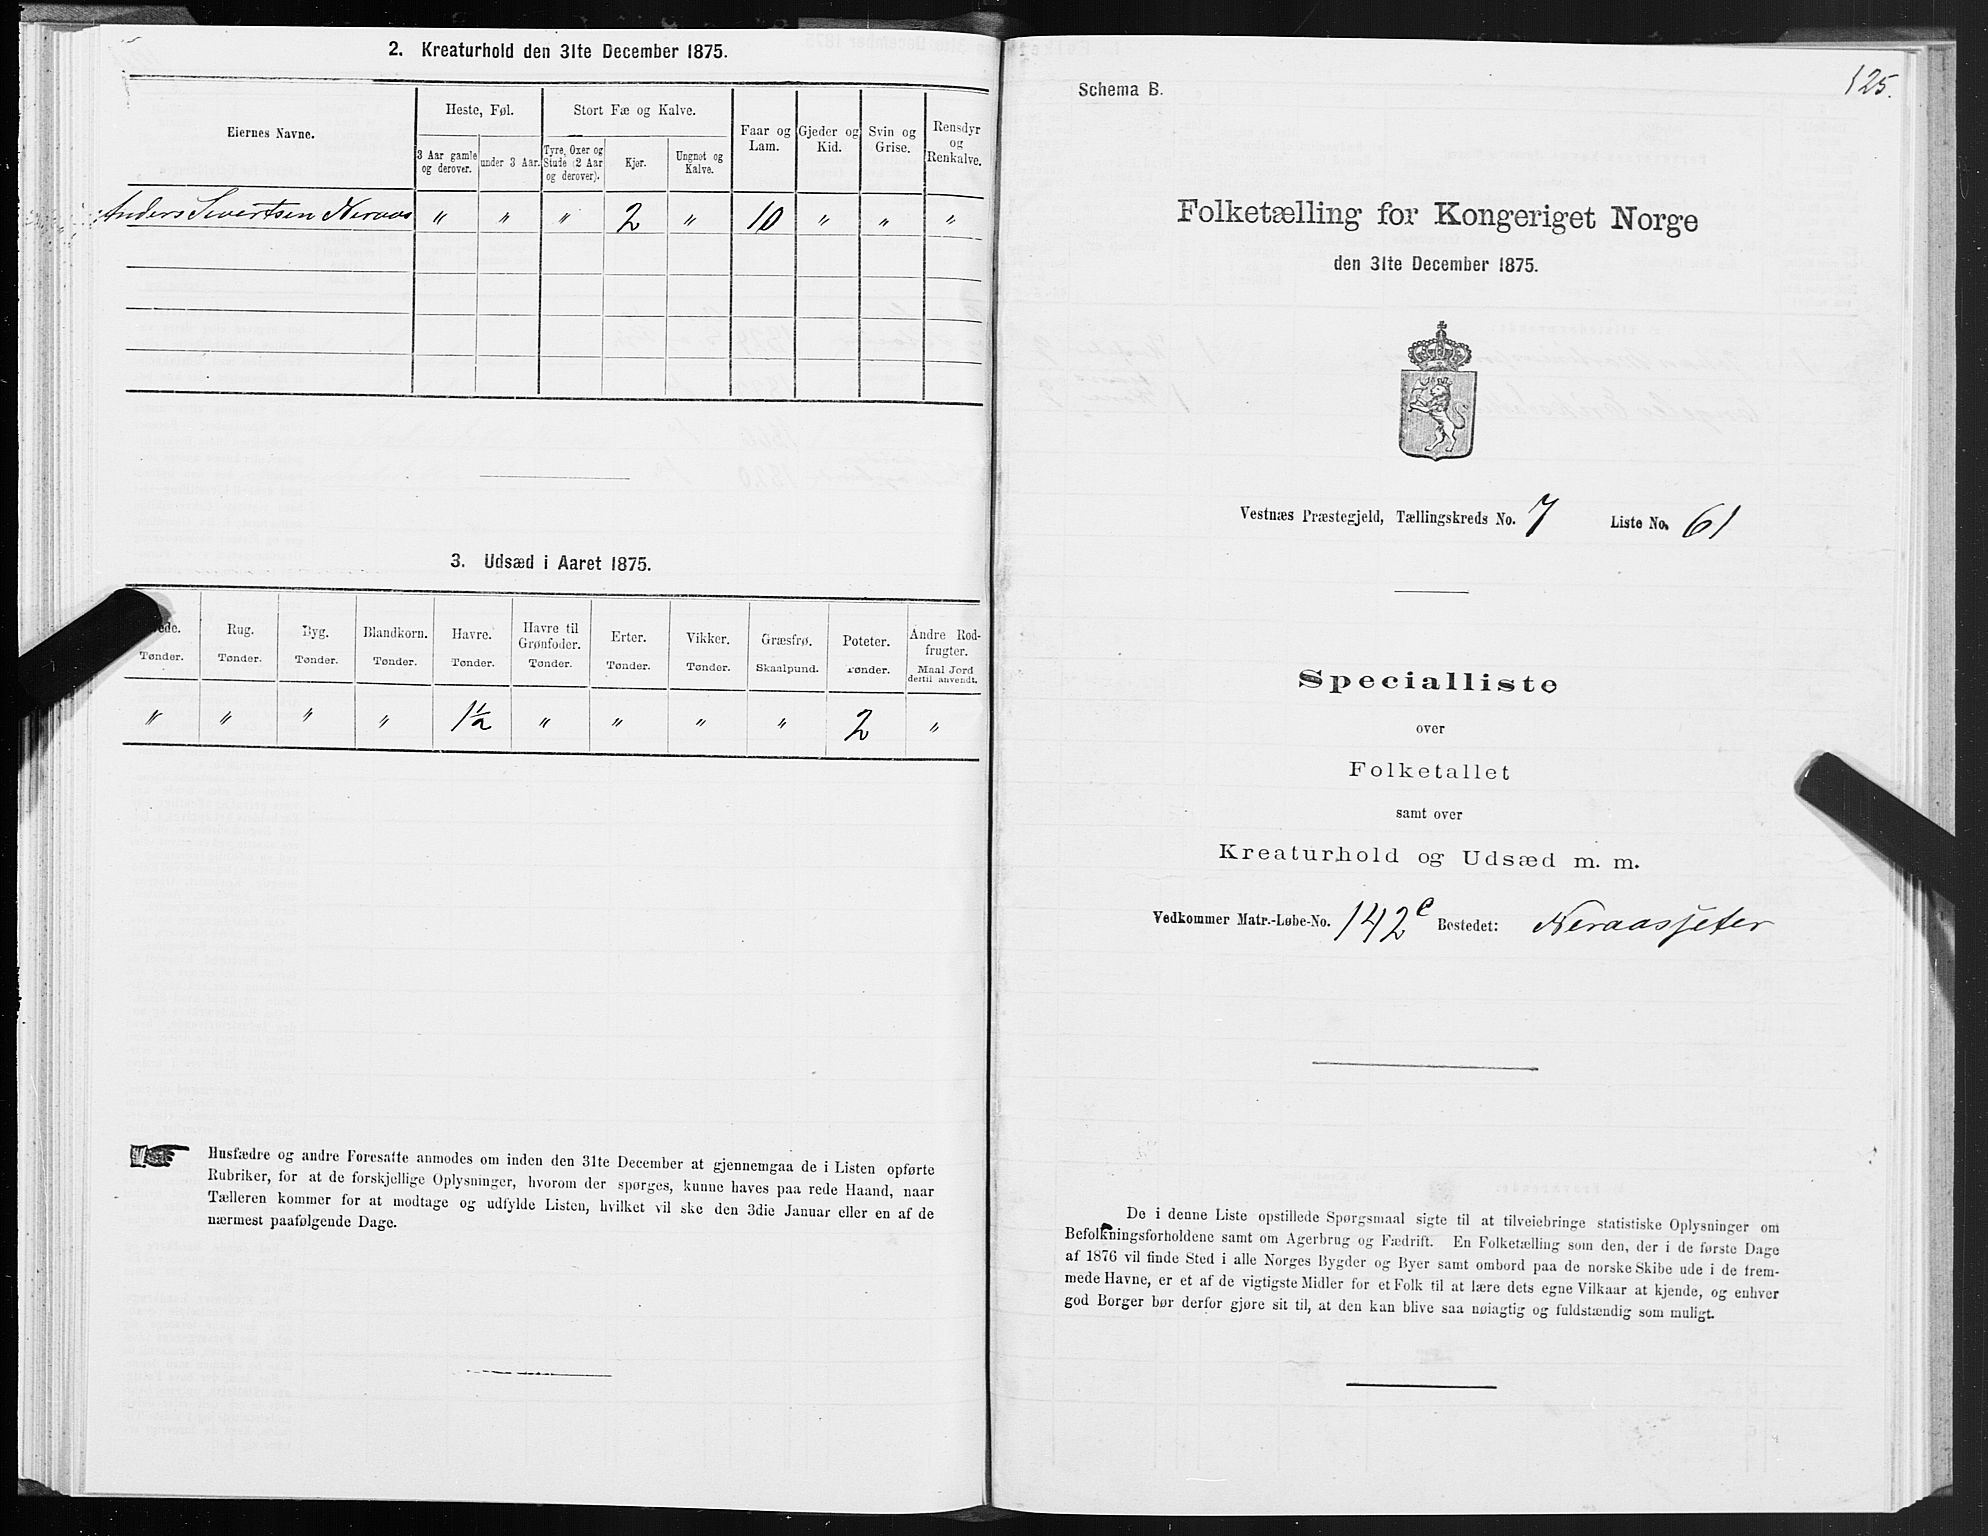 2. Kreaturhold den 31te December 1875.
Eiernes Navne.
Heste, Føl.
3 Aar gamle og derover.
under 3 Aar.
Stort Fæ og Kalve.
Tyre, Oxer og Stude (2 Aar og derover).
Kjør.
Ungnøt og Kalve.
Faar og Lam.
Gjeder og Kid.
Svin og Grise.
Rensdyr og Renkalve.
Anders Sivertsen Neraas " " " 2 " 10 " " "
3. Udsæd i Aaret 1875.
Rug. Tønder.
Byg. Tønder.
Blandkorn. Tønder.
Havre. Tønder.
Havre til Grønfoder. Tønder.
Erter. Tønder.
Vikker. Tønder.
Græsfrø. Skaalpund.
Poteter. Tønder.
Andre Rodfrugter. Maal Jord dertil anvendt.
" " " " 1½ " " " " 2 "
Husfædre og andre Foresatte anmodes om inden den 31te December at gjennemgaa de i Listen opførte
Rubriker, for at de forskjellige Oplysninger, hvorom der spørges, kunne haves paa rede Haand, naar
Tælleren kommer for at modtage og udfylde Listen, hvilket vil ske den 3die Januar eller en af de
nærmest paafølgende Dage.
125.
Schema B.
Folketælling for Kongeriget Norge
den 31te December 1875.
Vestnæs Præstegjeld, Tællingskreds No. 7 Liste No. 61
Specialliste
over
Folketallet
samt over
Kreaturhold og Udsæd m. m.
Vedkommer Matr.-Løbe-No. 142c Bostedet: Neraassjeter
De i denne Liste opstillede Spørgsmaal sigte til at tilveiebringe statistiske Oplysninger om
Befolkningsforholdene samt om Agerbrug og Fædrift. En Folketælling som den, der i de første Dage
af 1876 vil finde Sted i alle Norges Bygder og Byer samt ombord paa de norske Skibe ude i de frem-
mede Havne, er et af de vigtigste Midler for et Folk til at lære dets egne Vilkaar at kjende, og enhver
god Borger bør derfor gjøre sit til, at den kan blive saa nøiagtig og fuldstændig som muligt.